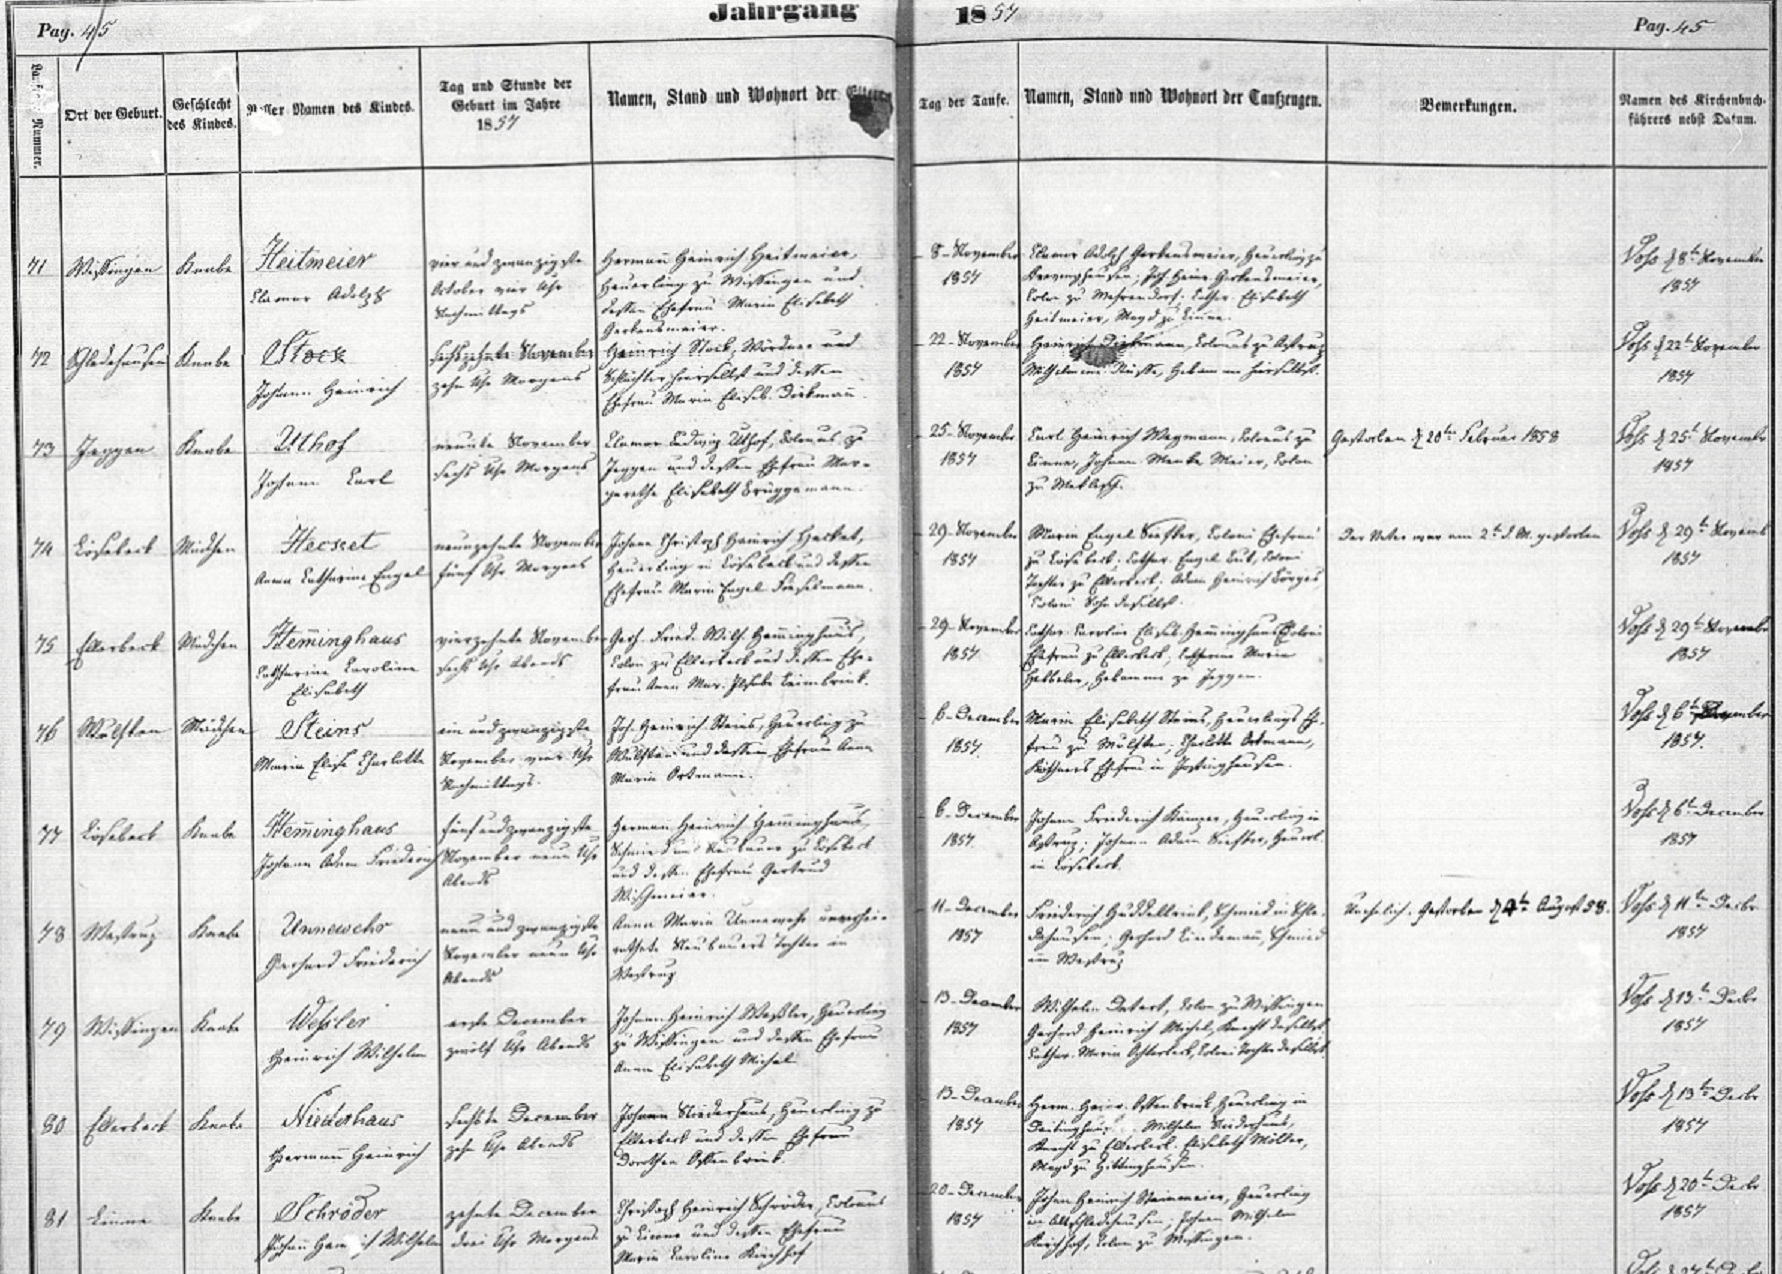 Jahrgang 1857
Pag. 45
Pag. 45
Laufende Nummer.
Ort der Geburt.
Geschlecht
des Kindes.
Namen des Kindes.
Tag und Stunde der
Geburt im Jahre
1857
Namen, Stand und Wohnort der Eltern
Tag der Taufe.
Namen, Stand und Wohnort der Taufzeugen.
Bemerkungen.
Namen des Kirchenbuch-
führers nebst Datum.
71
Wissingen
Knabe
Heitmeier
Clamor Adolph
vier und zwanzigste
October vier Uhr
Nachmittags
Hermann Heinrich Heitmeier,
Heuerling zu Wissingen und
dessen Ehefrau Maria Elisabeth
Gerkensmeier.
8. November
1857
Clamor Adolph Gerkensmeier, Heuerling zu
Joh. Heinr. Gerkensmeier,
Colon zu Cathar. Elisabeth
Heitmeier, Magd zu Linne.
Voss d 8t November
1857
72
Schledehausen
Knabe
Stock
Johann Heinrich
sechszehnte November
zehn Uhr Morgens
Heinrich Stock, und
Schlächter hierselbst und dessen
Ehefrau Maria Elisab. Diekmann.
22. November
1857
Heinrich Diekmann, Colonus zu Astrup
Wilhelmine Hebamme hierselbst.
Voss d 22t November
1857
73
Jeggen
Knabe
Uthof
Johann Carl
neunte November
sechs Uhr Morgens
Clamor Ludwig Uthof, Colonus zu
Jeggen und dessen Ehefrau Mar-
garethe Elisabeth Brüggemann.
25. November
1857
Carl Heinrich Wegmann, Colonus zu
Linne, Johann Meier, Colon
zu
Gestorben d 20ten Februar 1858
Voss d 25t November
1857
74
Lösebeck
Mädchen
Anna Catharine Engel
neunzehnte November
fünf Uhr Morgens
Johann Christoph Heinrich
Heuerling in Lösebeck und dessen
Ehefrau Maria Engel
29. November
1857
Maria Engel Siefker, Coloni Ehefrau
zu Lösebeck; Cathar. Engel Coloni
Tochter zu Ellerbeck; Adam Heinrich
Coloni Sohn daselbst.
Der Vater war am 2t d. M. gestorben
Voss d 29t November
1857
75
Ellerbeck
Mädchen
Hem̄inghaus
Catharine Caroline
Elisabeth
vierzehnte November
sechs Uhr Abends
Gerh. Fried. Wilh. Hem̄inghaus,
Colon zu Ellerbeck und dessen Ehe-
frau Anna Mar. Ilsabe Leimbrink.
29. November
1857
Cathar. Caroline Elisab. Hem̄inghaus Coloni
Ehefrau zu Ellerbeck; Catharine Maria
Hebamme zu Jeggen.
Voss d 29t November
1857
76
Wulften
Mädchen
Steins
Maria Elise Charlotte
ein und zwanzigste
November vier Uhr
Nachmittags.
Joh. Heinrich Steins, Heuerling zu
Wulften und dessen Ehefrau Anna
Maria Ortmann.
6. December
1857
Maria Elisabeth Steins, Heuerlings Eh-
frau zu Wulften; Charlotte Ortmann,
Ehefrau in Jostinghausen.
Voss d 6t December
1857.
77
Lösebeck
Knabe
Hem̄inghaus
Johann Adam Friederich
fünf und zwanzigste
November neun Uhr
Abends
Hermann Heinrich Hem̄inghaus,
Schmied und Neubauer zu Lösebeck
und dessen Ehefrau Gertrud
6. December
1857
Johann Friederich Heuerling in
Astrup; Johann Adam Siefker, Heuerl.
in Lösebeck.
Voss d 6t December
1857
78
Westrup
Knabe
Unnewehr
Gerhard Friederich
neun und zwanzigste
November neun Uhr
Abends
Anna Maria Unnewehr unverhei-
rathete Neubauers Tochter in
Westrup
11. December
1857
Friederich Schmied in Schle-
dehausen; Gerhard Lindemann, Schmied
in Westrup
Unehelich. Gestorben d 4t August 58.
Voss d 11t Decbr
1857
79
Wissingen
Knabe
Weßler
Heinrich Wilhelm
erste December
zwölf Uhr Abends
Johann Heinrich Weßler, Heuerling
zu Wissingen und dessen Ehefrau
Anna Elisabeth Michel
13. December
1857
Wilhelm Detert, Colon zu Wissingen
Gerhard Heinrich Michel, Knecht daselbst
Cathar. Maria Achterbeck, Coloni Tochter daselbst.
Voss d 13t Decbr
1857
80
Ellerbeck
Knabe
Niederhaus
Hermann Heinrich
sechste December
zehn Uhr Abends
Johann Niederhaus, Heuerling zu
Ellerbeck und dessen Ehefrau
Dorothea Assenbrink.
13. December
1857
Herm. Heinr. Assenbrink, Heuerling in
Wilhelm Niederhaus,
Knecht zu Ellerbeck. Elisabeth Möller,
Magd zu
Voss d 13t Decbr
1857
81
Linne
Knabe
Schröder
Johann Heinrich Wilhelm
zehnte December
drei Uhr Morgens
Christoph Heinrich Schröder, Colonus
zu Linne und dessen Ehefrau
Maria Caroline Kirchhof
20. December
1857
Johann Heinrich Steinmeier, Heuerling
in Altschledehausen; Johann Wilhelm
Kirchhof, Colon zu Wissingen.
Voss d 20t Decbr
1857